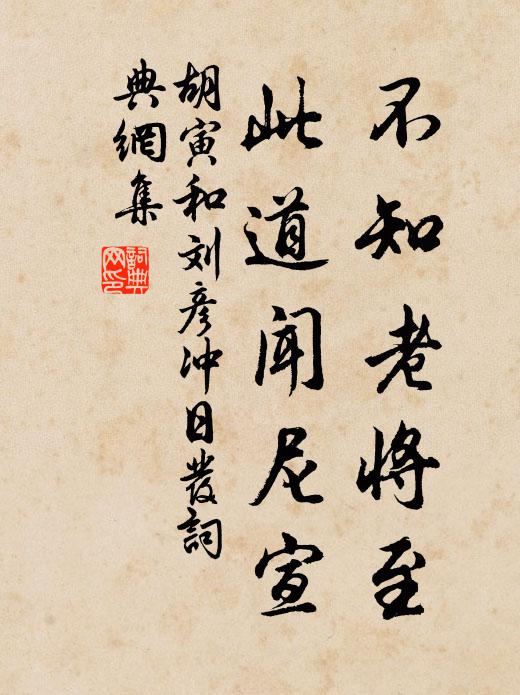 不知老将至
此道闻尼宣
胡寅和刘彦冲日發詞
典網集
詞典
网印